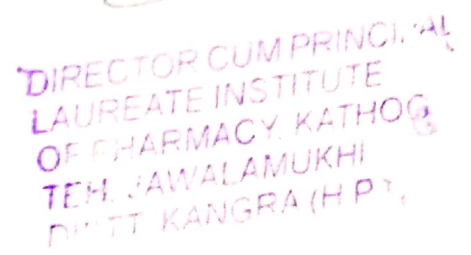 DIRECTOR CUM PRINCIPAL
LAUREATE INSTITUTE
OF PHARMACY, KATHOG
TEH. JAWALAMUKHI
DISTT. KANGRA (H.P.),